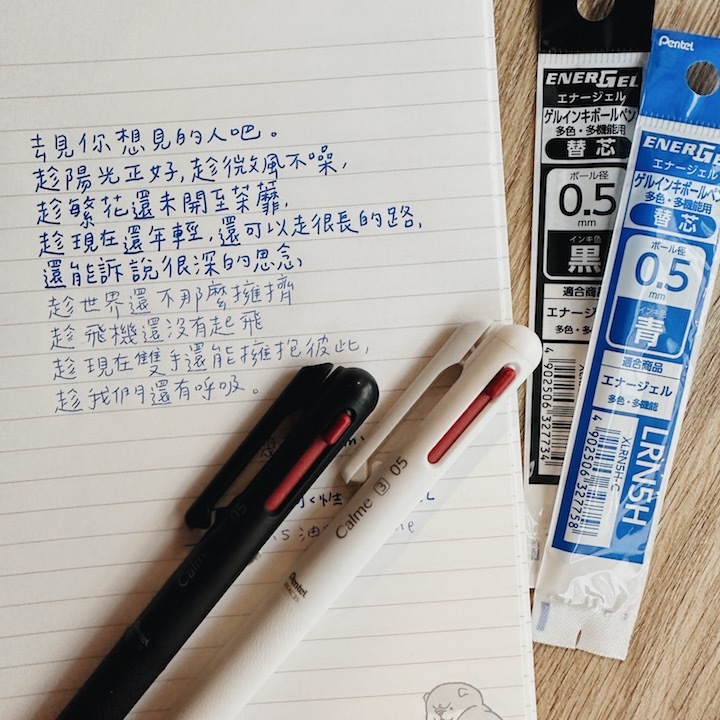 去見你想見的人吧。
趁陽光正好,趁微風不噪,
趁繁花還未開至荼蘼,
趁現在還年輕,還可以走很長的路,
還能訴說很深的思念,
趁世界還不那麼擁擠
趁飛機還沒有起飛
趁現在雙手還能擁抱彼此,
趁我們還有呼吸。
Calme 3 05
Pentel
Calme
05
ENERGEL
エナージェル
ゲルインキボールペン
多色・多機能用
替芯
ボール径
0.5
mm
インキ色
黒
適合商品
エナージェル
多色・多機能
4 902506 327734
Pentel
ENERGEL
エナージェル
ゲルインキボールペン
多色・多機能用
替芯
ボール径
0.5
mm
インキ色
青
適合商品
エナージェル
多色・多機能
LRN5H
XLRN5H-C
4 902506 327758